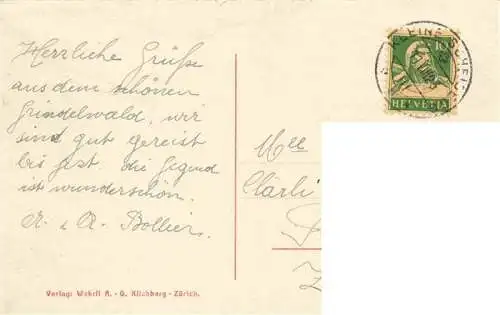 Herrliche Grüße
aus dem schönen
Grindelwald, wir
sind gut gereist
bis jezt. die Gegend
ist wunderschön.
A. & A. Bollier.
KLEINE SCHEI
10
HELVETIA
Mlle
Clärli
Verlag: Wehrli A. - G. Kilchberg - Zürich.